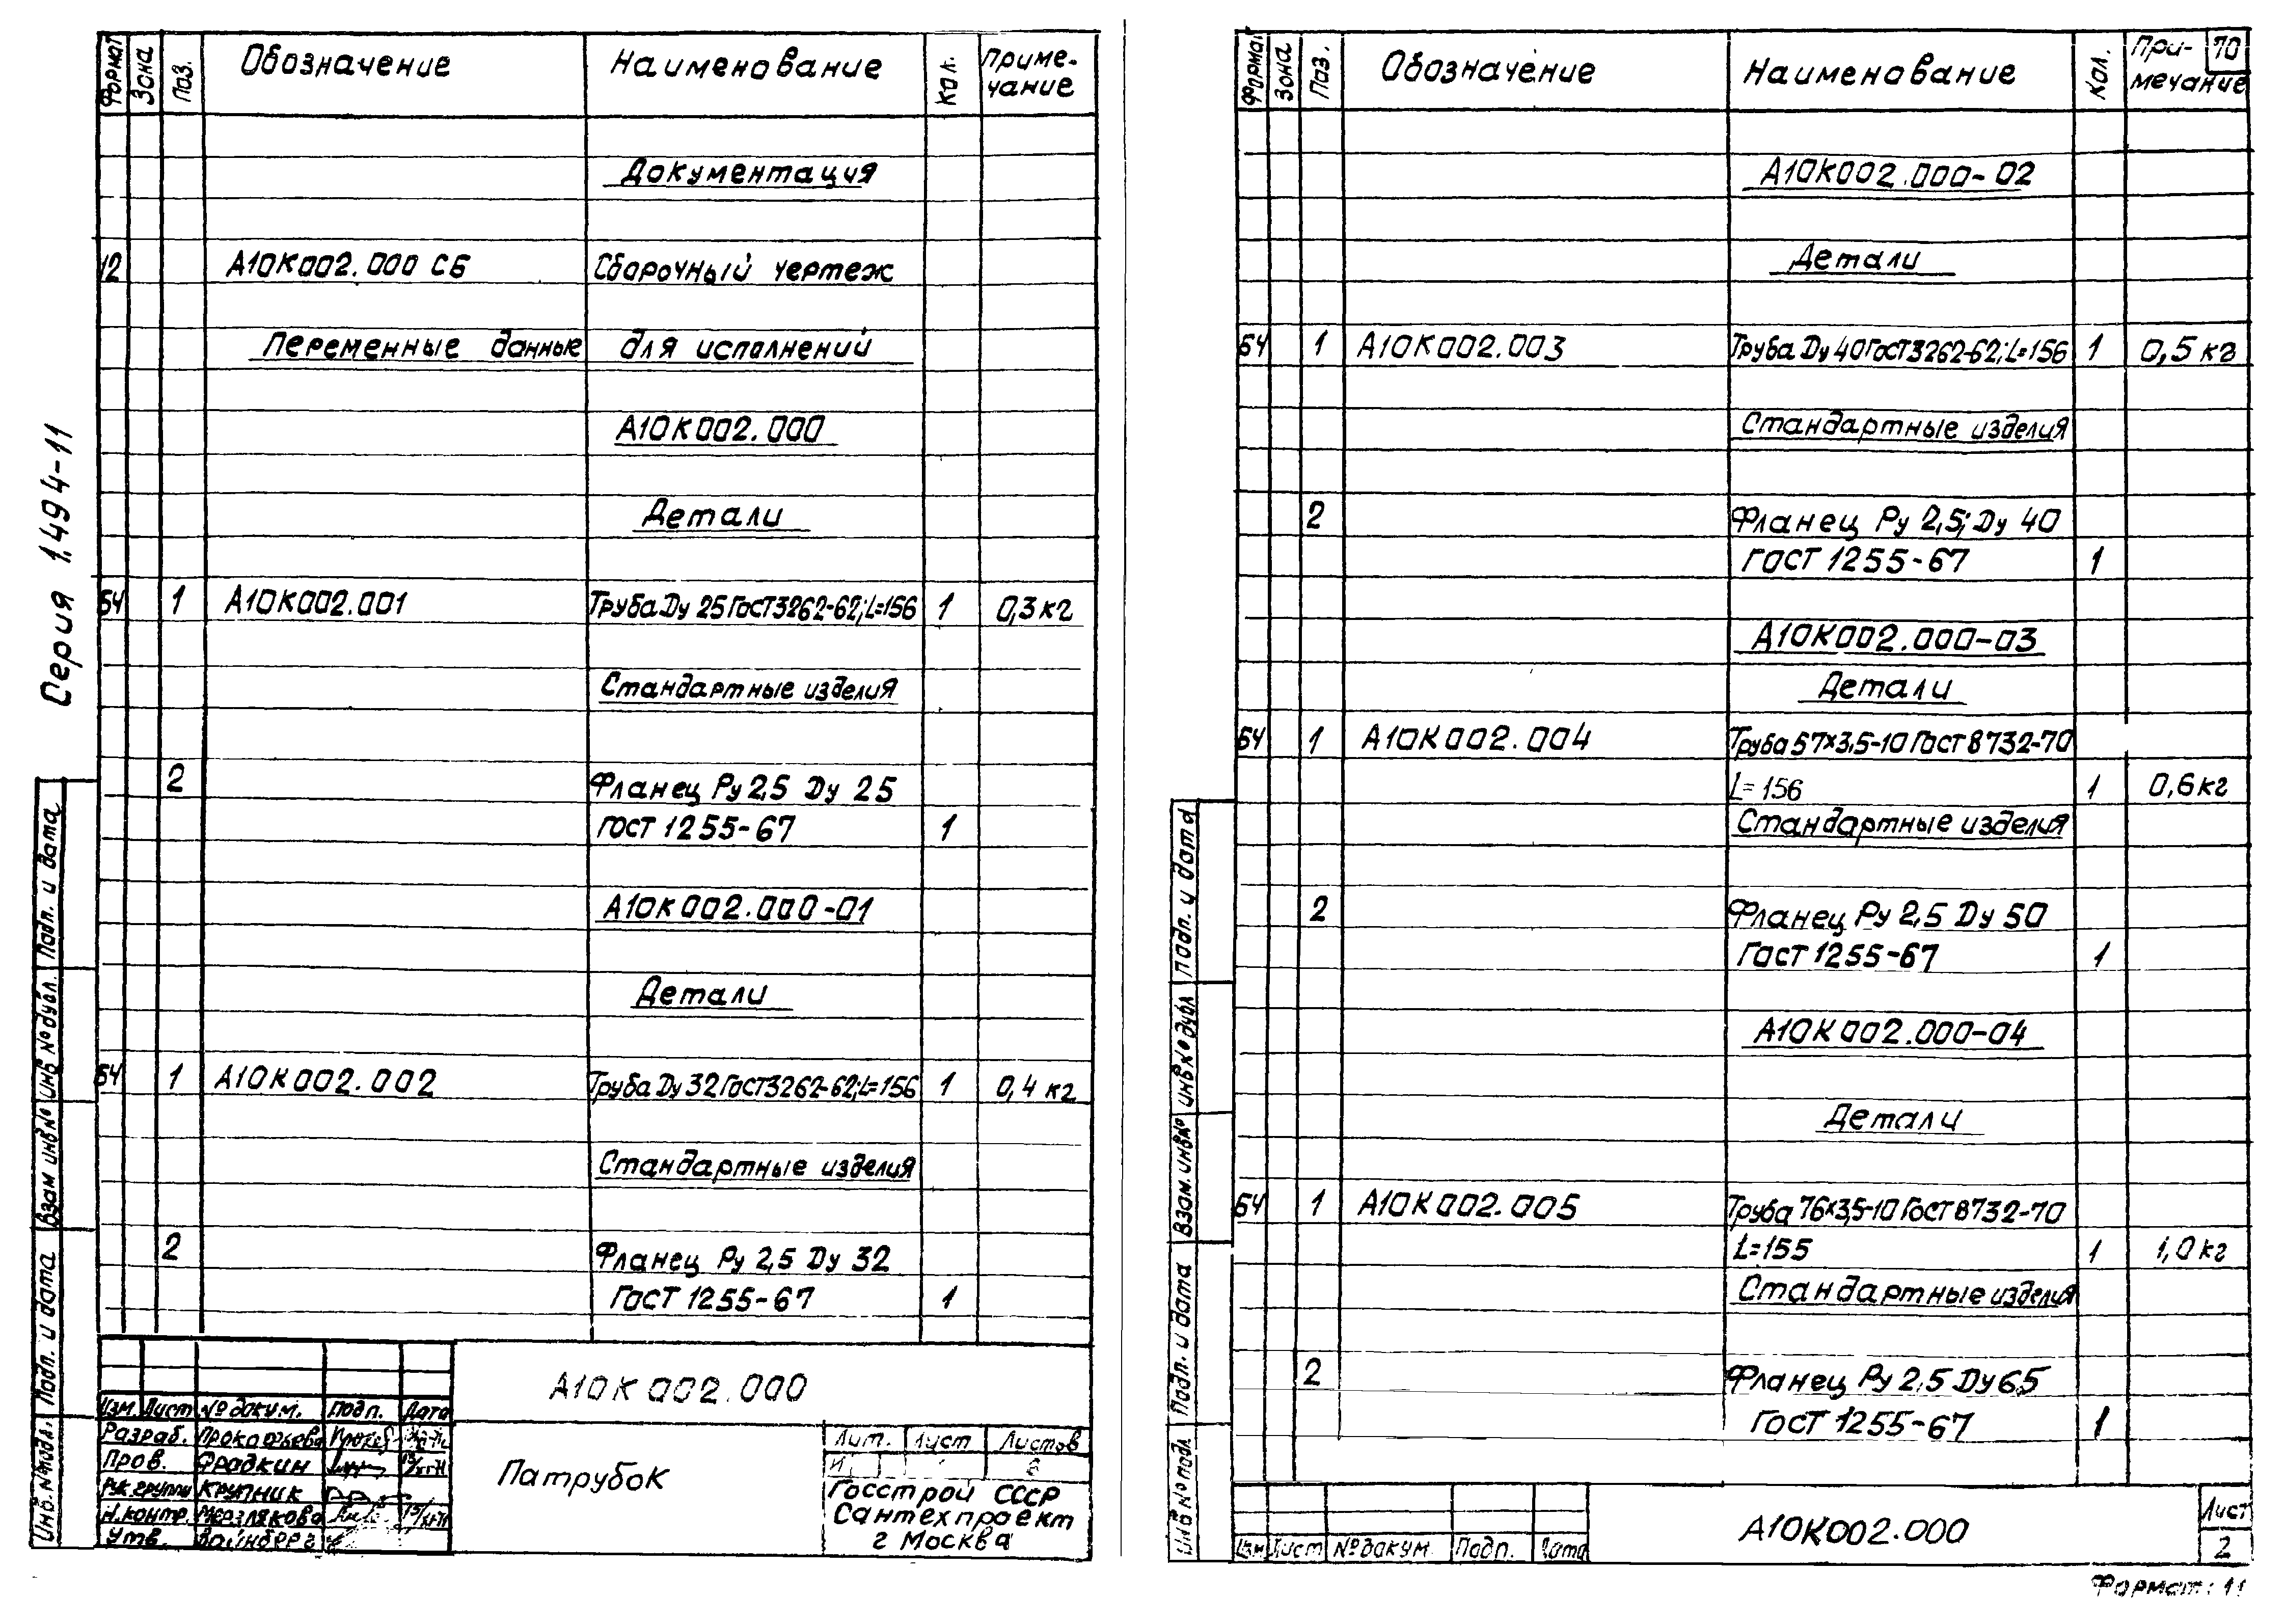 Серия 1.494-11
Формат Зона Поз. Обозначение Наименование Кол. Приме-
чание
Документация
12 А10К002.000 СБ Сборочный чертеж
Переменные данные для исполнений
А10К002.000
Детали
БЧ 1 А10К002.001 Труба Ду 25 ГОСТ 3262-62; L=156 1 0,3 кг
Стандартные изделия
2 Фланец Ру 2,5 Ду 25
ГОСТ 1255-67 1
А10К002.000-01
Детали
БЧ 1 А10К002.002 Труба Ду 32 ГОСТ 3262-62; L=156 1 0,4 кг
Стандартные изделия
2 Фланец Ру 2,5 Ду 32
ГОСТ 1255-67 1
Подп. и дата
Инв № дубл.
Взам инв №
Подп. и дата
Инв. № подл.
А10К002.000
Изм. Лист № докум. Подп. Дата
Разраб. Прокофьева
Пров. Фрадкин
Рук. группы Крупник
Н. контр. Мерзлякова
Утв. Вайнберг
Патрубок
Лит. Лист Листов
И
Госстрой СССР
Сантехпроект
г Москва
Формат Зона Поз. Обозначение Наименование Кол. При-
мечание
70
А10К002.000-02
Детали
БЧ 1 А10К002.003 Труба Ду 40 ГОСТ 3262-62; L=156 1 0,5 кг
Стандартные изделия
2 Фланец Ру 2,5; Ду 40
ГОСТ 1255-67 1
А10К002.000-03
Детали
БЧ 1 А10К002.004 Труба 57×3,5-10 ГОСТ 8732-70
L=156 1 0,6 кг
Стандартные изделия
2 Фланец Ру 2,5 Ду 50
ГОСТ 1255-67 1
А10К002.000-04
Детали
БЧ 1 А10К002.005 Труба 76×3,5-10 ГОСТ 8732-70
L=155 1 1,0 кг
Стандартные изделия
2 Фланец Ру 2,5 Ду 65
ГОСТ 1255-67 1
Подп. и дата
Инв № дубл
Взам. инв №
Подп. и дата
Инв № подл.
Изм Лист № докум. Подп. Дата
А10К002.000
Лист
2
Формат: 11